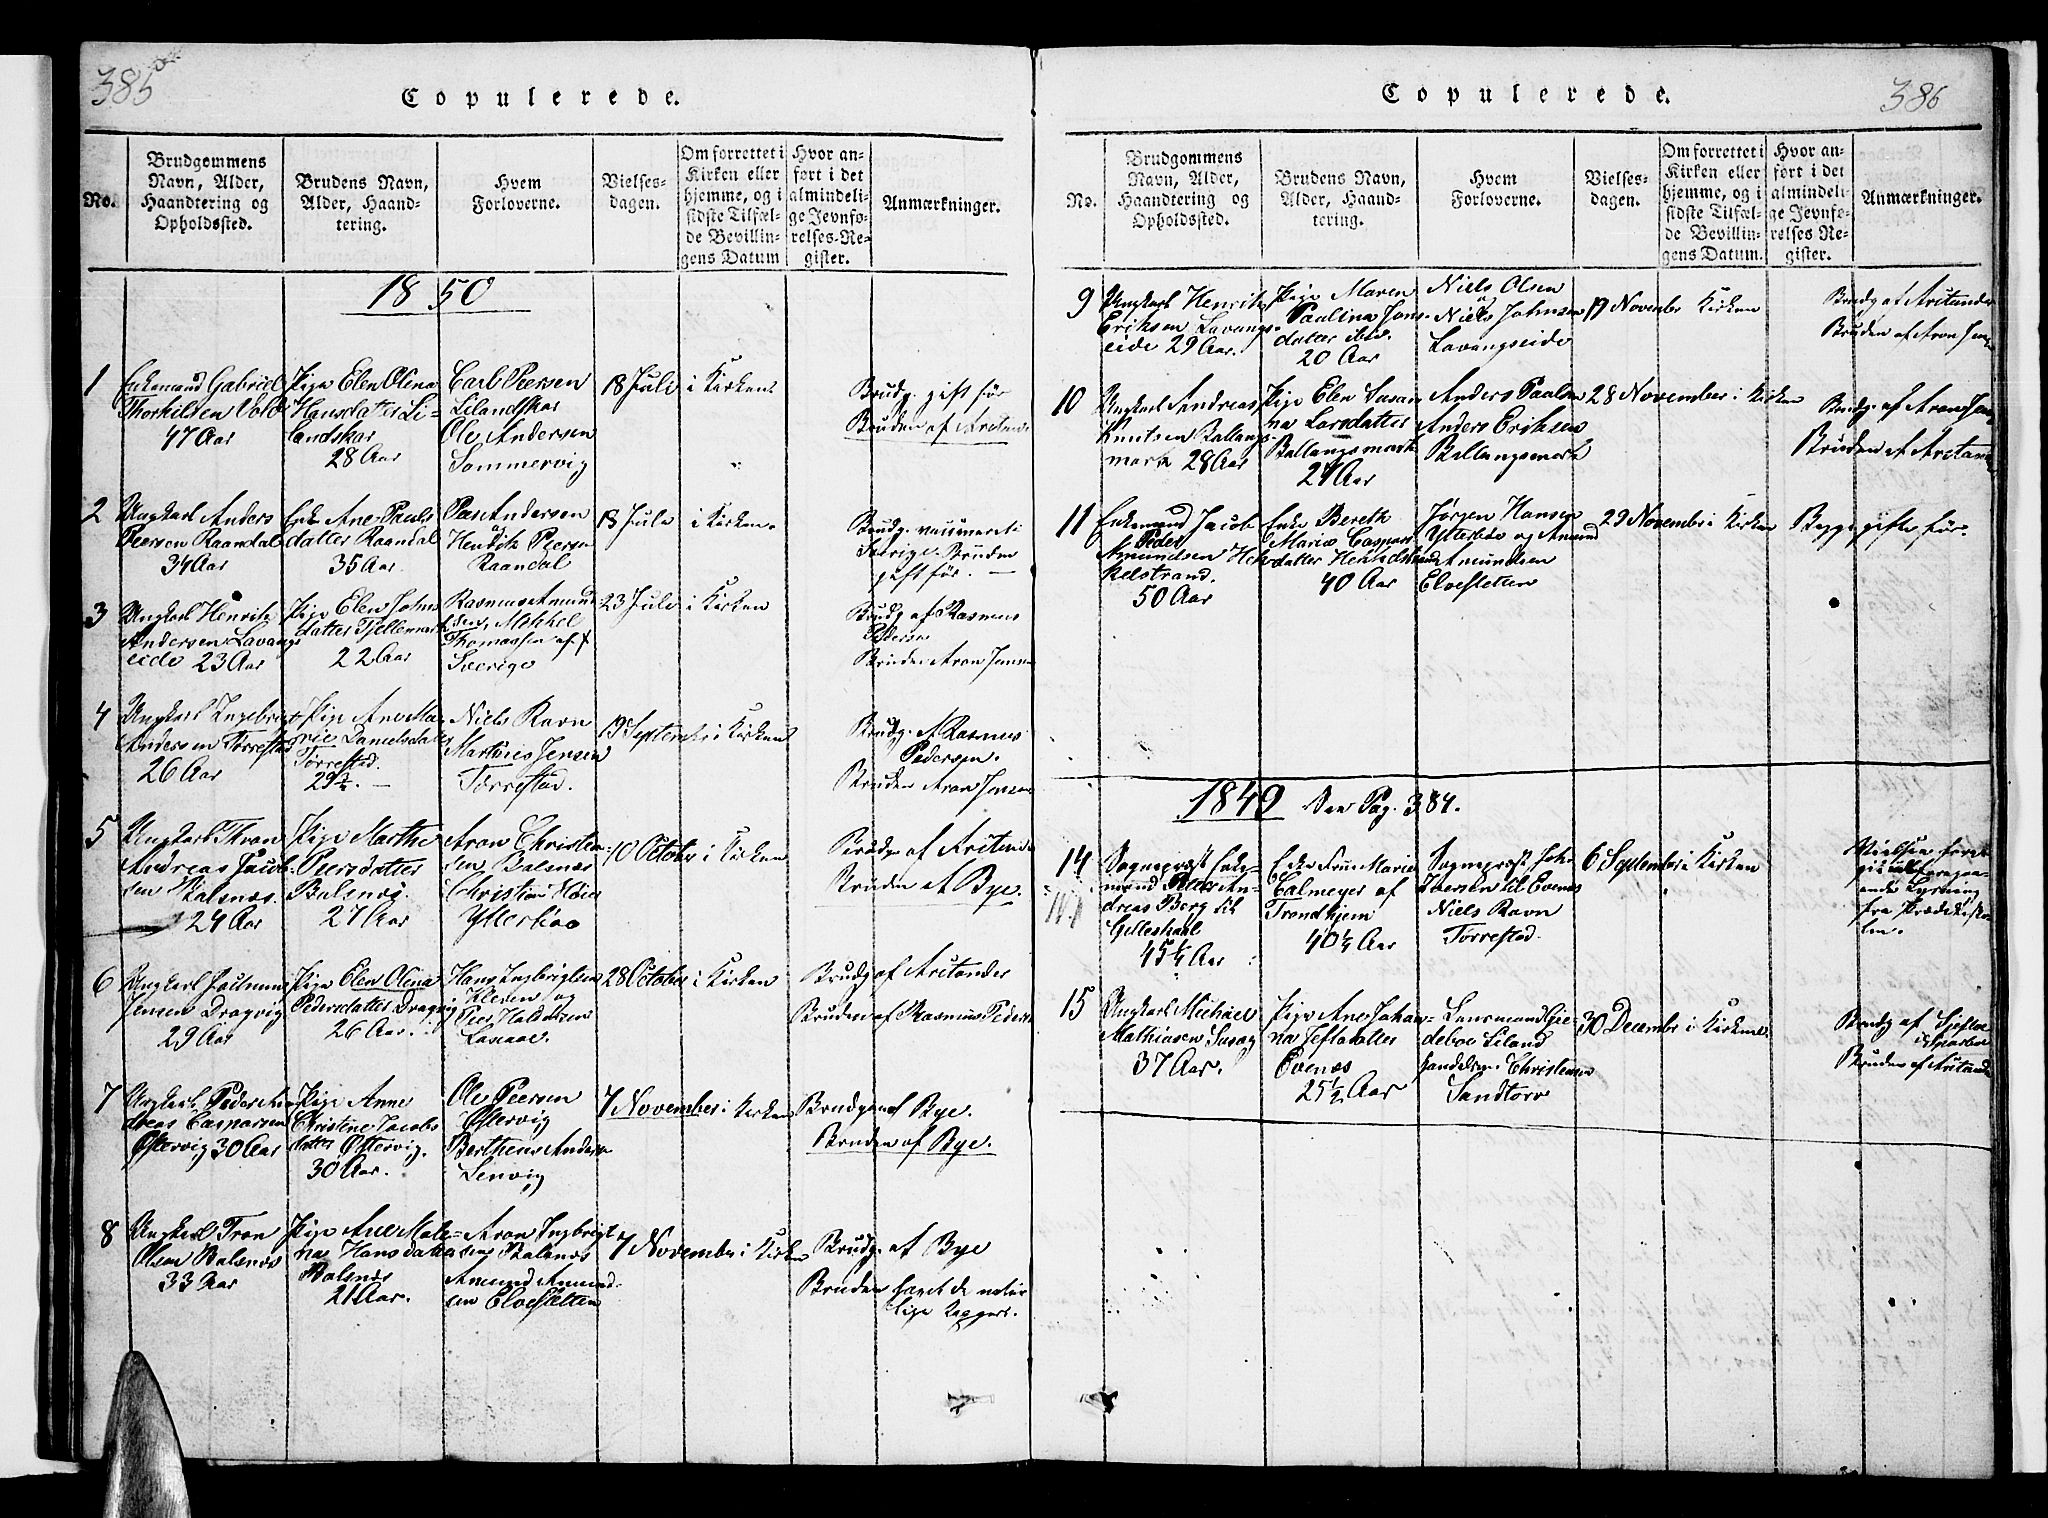 385
Copulerede.
No.
Brudgommens Navn, Alder, Haandtering og Opholdssted.
Brudens Navn, Alder, Haandtering.
Hvem Forloverne.
Vielsesdagen.
Om forrettet i Kirken eller hjemme, og i sidste Tilfælde Bevillingens Datum
Hvor anført i det almindelige Jevnførelses-Register.
Anmærkninger.
1850
1
Enkemand Gabriel
Thorkilsen Vold
47 Aar
Pige Elen Olina
Hansdatter Li-
landskar
28 Aar
Carl Peersen
Lilandskar
Ole Andersen
Sommervig
18 Juli
i Kirken
Brudg. gift før
Bruden af
2
Ungkarl Anders
Peersen Raandal
34 Aar
Enke Ane Pauls
datter Raandal
35 Aar.
Andersen
og
Henrik Peersen
Raandal
18 Juli
i Kirken.
Brudg. vaccineret i
Sverige. Bruden
gift før.
3
Ungkarl Henrik
Andersen Lavangs
eide 23 Aar
Pige Elen John
datter Tjellemark
22 Aar
Rasmus Amund
sen, Mikkel
Thomassen af
Sverige
23 Juli
i Kirken
Brudg. af Rasmus
Pedersen
Bruden Aron Jensen
4
Ungkarl Ingebrigt
Andersen Tørrestad
26 Aar
Pige Ane Ma-
rie Danielsdatter
Tørrestad.
29 3/4.
Niels Ravn
Martines Jensen
Tørrestad.
19 September
i Kirken
Brudg. af Rasmus
Pedersen.
Bruden Aron Jensen
5
Ungkarl Thron
Andreas Jacob
sen Balsnes.
24 Aar
Pige Marthe
Peersdatter
Balsnes.
27 Aar
Aron Christen
sen Balsnes
Christian
10 October
i Kirken
Brudg. af
Bruden af Bye.
6
Ungkarl
Jensen Dragvig
29 Aar
Pige Elen Olina
Pedersdatter Dragvig
26 Aar.
Hans Ingbrigtsen
Kleven og
Peer
28 October
i Kirken
Brudg af Aristander
Bruden af Rasmus Peders
7
Ungkarl Peder An-
dreas Casparsen
Østervig 30 Aar
Pige Anne
Christine Jacobs
datter Østervig.
30 Aar.
Ole Peersen
Østervig
Berthens Anders
Lenvig
7 November
i Kirken
Brudgen af Bye.
Bruden af Bye.
8
Ungkarl Tron
Olsen Balsnes
33 Aar
Pige Ane Male-
na Hansdatter
Balsnes
21 Aar.
Aron Ingbrigt
sen Balsnes
Amund Amund-
sen Elvesletten
7 November
i Kirken
Brudg. af Bye
Bruden havt de natur
lige Kopper.
386
Copulerede.
No.
Brudgommens Navn, Alder, Haandtering og Opholdssted.
Brudens Navn, Alder, Haandtering.
Hvem Forloverne.
Vielsesdagen.
Om forrettet i Kirken eller hjemme, og i sidste Tilfælde Bevillingens Datum.
Hvor anført i det almindelige Jevnførelses Register.
Anmærkninger.
9
Ungkarl Henrik
Eriksen Lavangs-
eide 29 Aar.
Pige Maren
Paulina Jens-
datter ibid.
20 Aar
Niels Olsen
og
Niels Johnsen
Lavangseide
19 November
Kirken
Brudg af Aristander
Bruden af Aron Jens
10
Ungkarl Andreas
Knutsen Ballangs-
mark 28 Aar
Pige Elen Susan
na Larsdatter
Ballangsmark
24 Aar
Anders Paulsen
Anders Eriksen
Ballangsmark
28 November
i Kirken
Brudg. af Aron Jens
Bruden af Aristand
11
Enkemand Jacob
Peder
Amundsen Hen
kelstrand.
50 Aar
Enke Bereth
Marie Caspars
datter
40 Aar
Jørgen Hansen
og Amund
Amundsen
Elvesletten
29 November
i Kirken
Begge gifte før.
1849 See Pag. 384.
14
Sogneprest Enke-
mand Peder An-
dreas Berg til
Gilleskaal
45 1/4 Aar
Enke Frue Maria
Calmeyer af
Trondhjem
40 1/4 Aar
Sogneprest John
Iversen til Evenes
Niels Ravn
Tørrestad.
6 September
i Kirken
Vielsen foret
foregaa-
ende Lysning
fra Prædikesto
len.
15
Ungkarl Michael
Mathiasen
37 Aar.
Pige Ane Johan-
na Jeftadatter
Evenes
25 1/2 Aar
Lensmand Gie-
deboe Liland
Handelsm. Christensen
Sandtorv
30 December
i Kirken
Brudg af
Bruden af Aristand